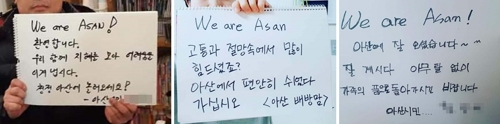 We are ASAN!
환영합니다.
우리 함께 지혜를 모아 어려움을
이겨 냅시다.
청정 아산에 놀러오세요?
- 아산
We are Asan
고통과 절망속에서 많이
힘드셨죠?
아산에서 편안히 쉬었다
가십시오
<아산 배방맘>
We are Asan!
아산에 잘 오셨습니다~^^
잘 계시다 아무 탈 없이
가족의 품으로 돌아가시길 바랍니다
아산시민...